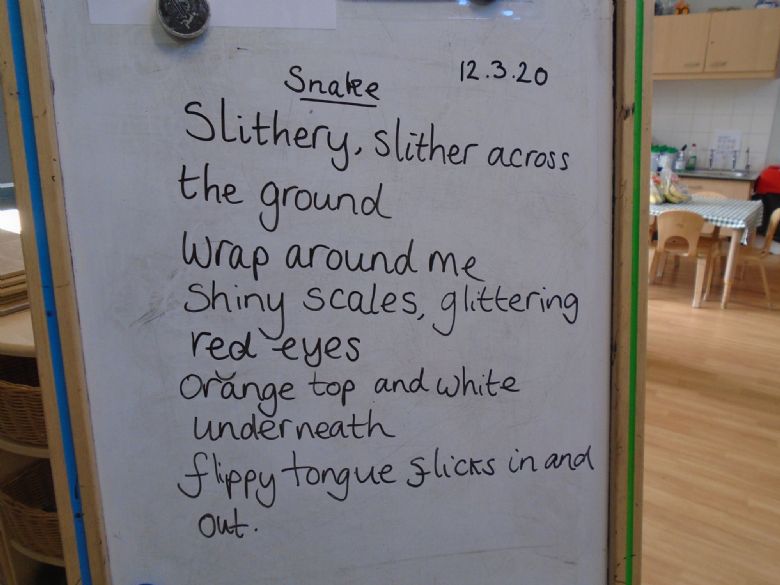 Snake 12.3.20
Slithery, slither across
the ground
Wrap around me
Shiny scales, glittering
red eyes
Orange top and white
underneath
flippy tongue flicks in and
out.